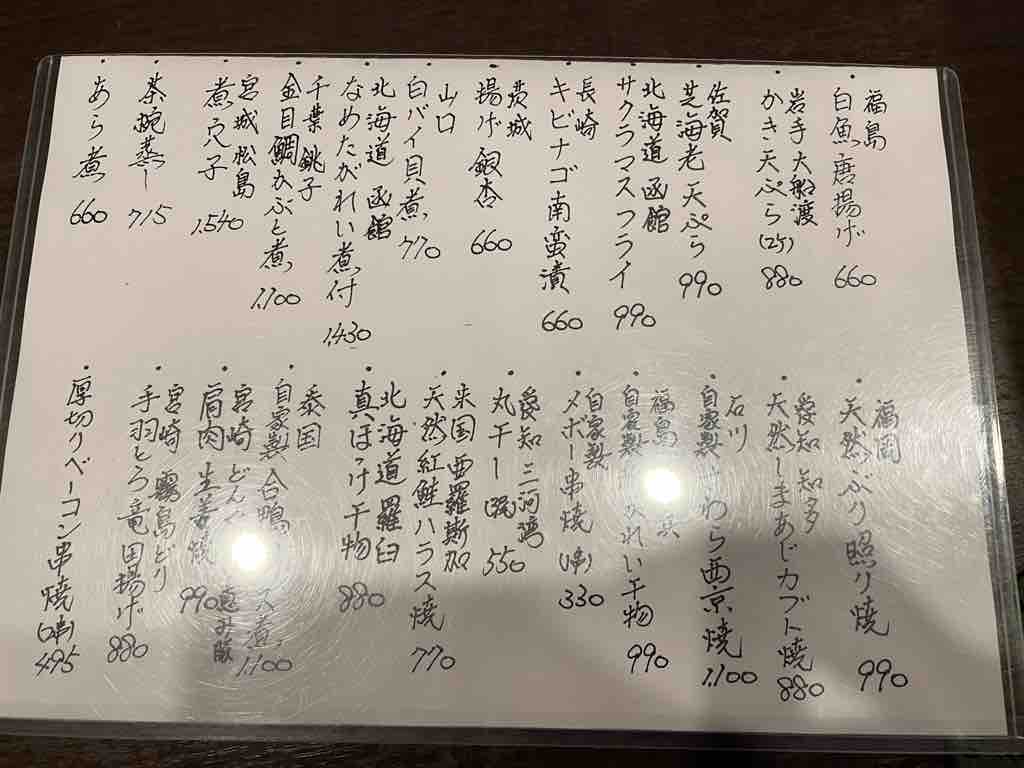 福島
・白魚唐揚げ 660
岩手 大船渡
・かき天ぷら(2ケ) 880
佐賀
・芝海老天ぷら 990
北海道 函館
・サクラマスフライ 990
長崎
・キビナゴ南蛮漬 660
茨城
・揚げ銀杏 660
山口
・白バイ貝煮 770
北海道 函館
・なめたがれい煮付 1,430
千葉 銚子
・金目鯛かぶと煮 1,100
宮城 松島
・煮穴子 1,540
・茶碗蒸し 715
・あら煮 660
福岡
・天然ぶり照り焼 990
愛知 知多
・天然しまあじカブト焼 880
石川
・自家製 わら西京焼 1,100
福島
・自家製 れい干物 990
自家製
・メボー串焼(1串) 330
愛知 三河湾
・丸干し 550
米国 亜羅斯加
・天然紅鮭ハラス焼 770
北海道 羅臼
・真ほっけ干物 880
泰国
・自家製合鴨 ス煮 1,100
宮崎 どん 恵み豚
・肩肉生姜焼 990
宮崎 霧島どり
・手羽とろ竜田揚げ 880
・厚切りベーコン串焼(2串) 495